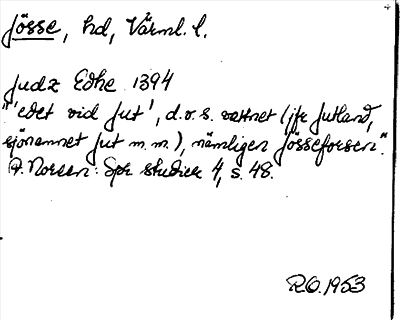 Jösse, hd, Värml. l.
Judz Edhe 1394
"'edet vid Jut', d.v.s. vattnet (jfr Jutland,
sjönamnet Jut m.m.), nämligen Jösseforsen".
A. Noreen: Spr. studier 4, s. 48.
R.O. 1953